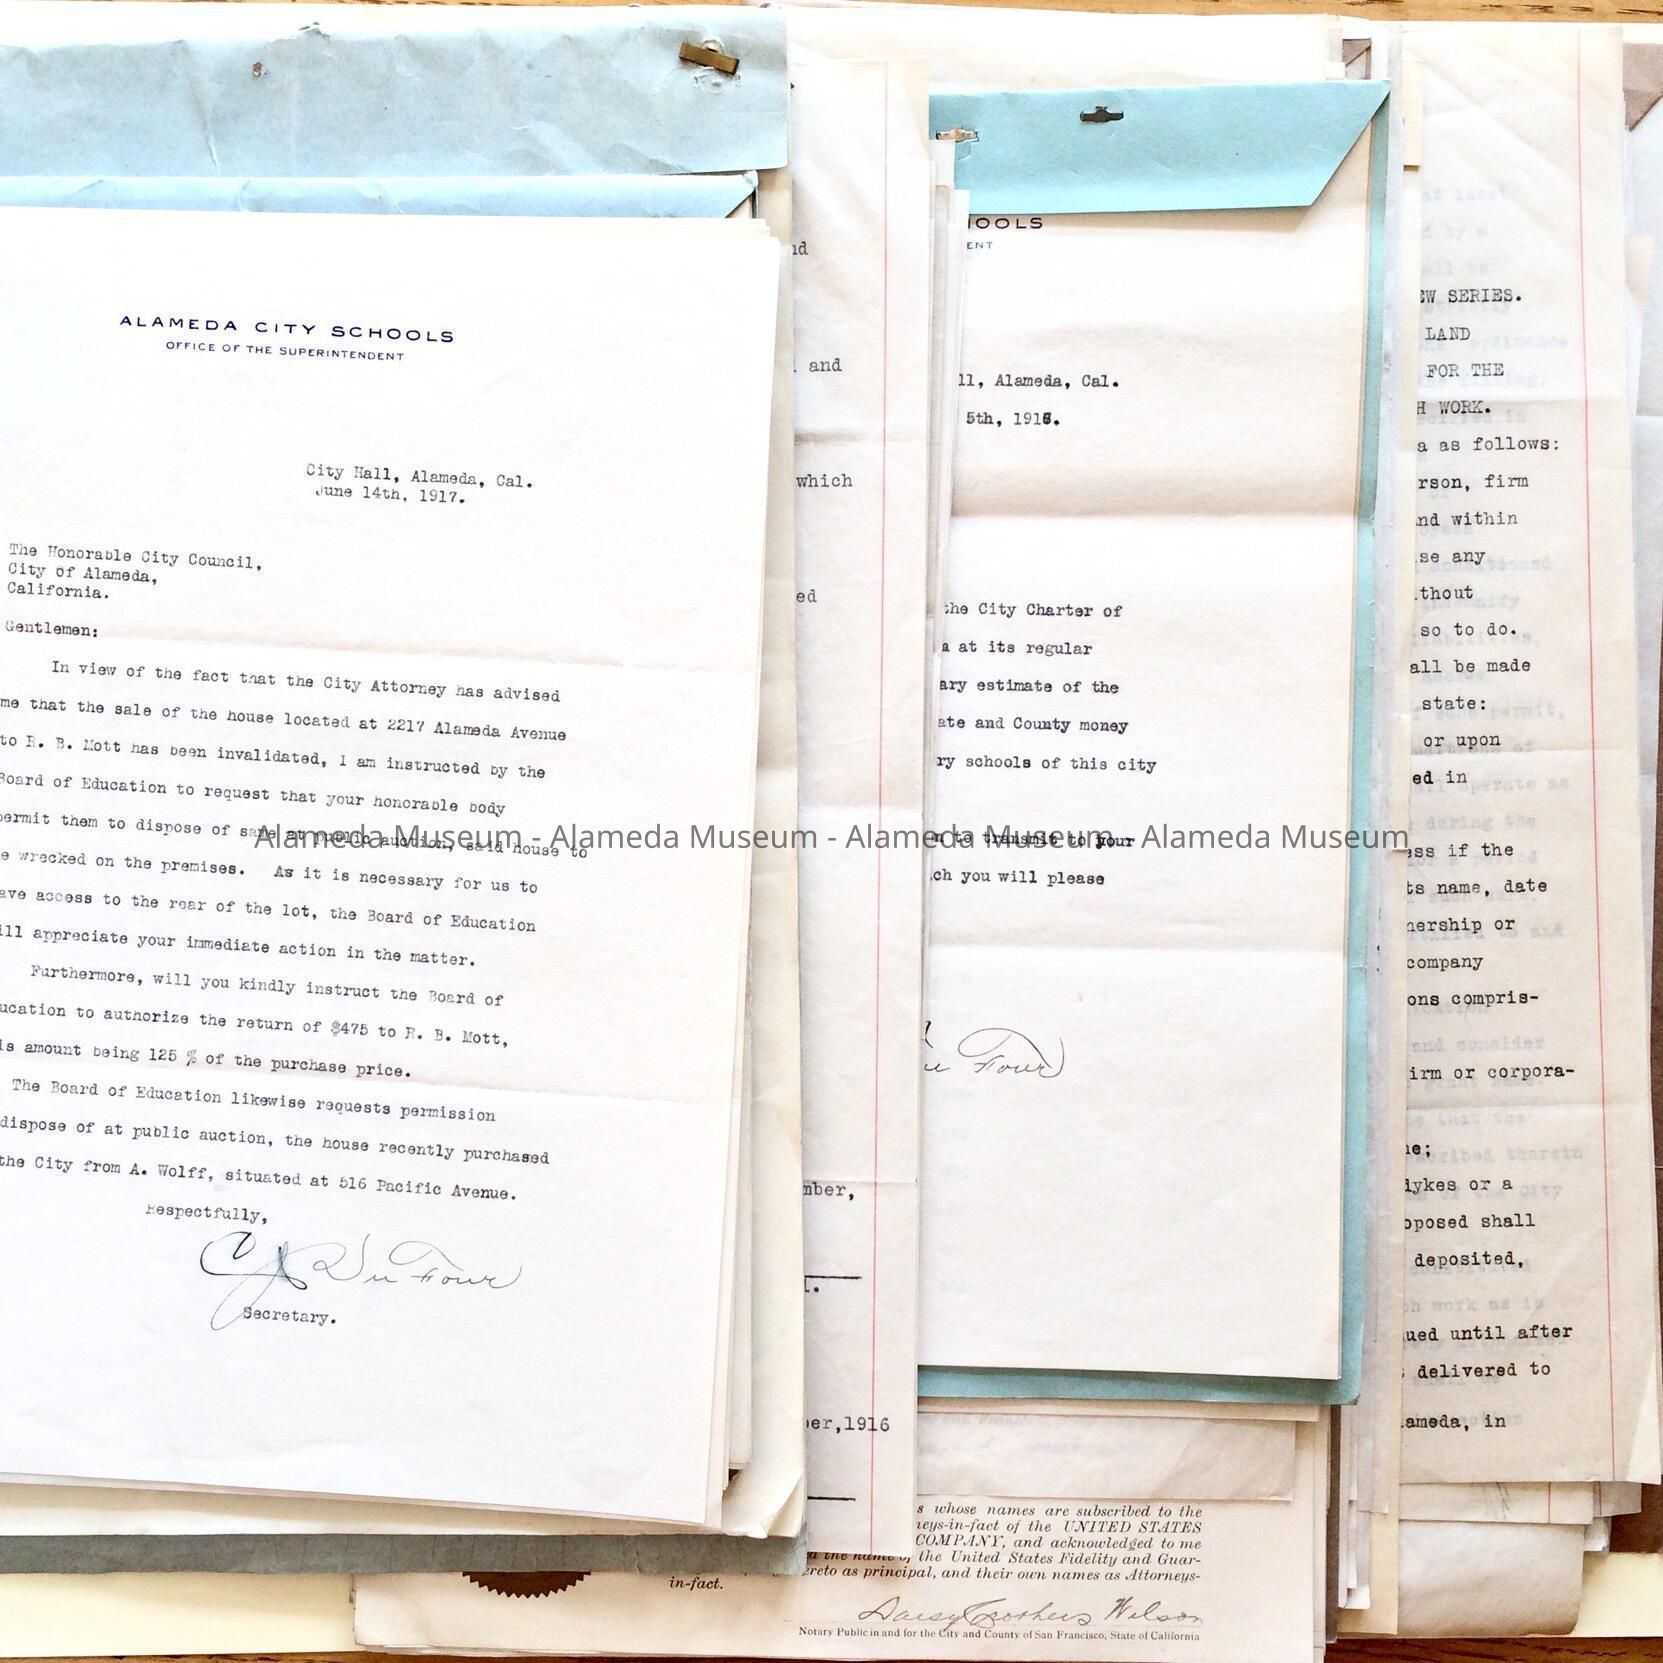 ALAMEDA CITY SCHOOLS
OFFICE OF THE SUPERINTENDENT
City Hall, Alameda, Cal.
June 14th, 1917.
The Honorable City Council,
City of Alameda,
California.
Gentlemen:
In view of the fact that the City Attorney has advised
me that the sale of the house located at 2217 Alameda Avenue
to R. B. Mott has been invalidated, I am instructed by the
Board of Education to request that your honorable body
permit them to dispose of same at public auction, said house to
e wrecked on the premises. As it is necessary for us to
ave access to the rear of the lot, the Board of Education
ill appreciate your immediate action in the matter.
Furthermore, will you kindly instruct the Board of
ucation to authorize the return of $475 to R. B. Mott,
is amount being 125 % of the purchase price.
The Board of Education likewise requests permission
dispose of at public auction, the house recently purchased
the City from A. Wolff, situated at 516 Pacific Avenue.
Respectfully,
C J Du Four
Secretary.
Alameda Museum - Alameda Museum - Alameda Museum - Alameda Museum
nd
and
which
ed
mber,
ber,1916
HOOLS
ENT
ll, Alameda, Cal.
5th, 1918.
the City Charter of
at its regular
ary estimate of the
ate and County money
ry schools of this city
n to transmit to your
ch you will please
u Four
s whose names are subscribed to the
neys-in-fact of the UNITED STATES
COMPANY, and acknowledged to me
d the name of the United States Fidelity and Guar-
ereto as principal, and their own names as Attorneys-
in-fact.
Daisy Crothers Wilson
Notary Public in and for the City and County of San Francisco, State of California
EW SERIES.
LAND
FOR THE
H WORK.
a as follows:
rson, firm
nd within
se any
thout
so to do.
all be made
state:
or upon
ed in
ess if the
ts name, date
nership or
company
ons compris-
irm or corpora-
ne;
dykes or a
oposed shall
deposited,
ued until after
delivered to
ameda, in